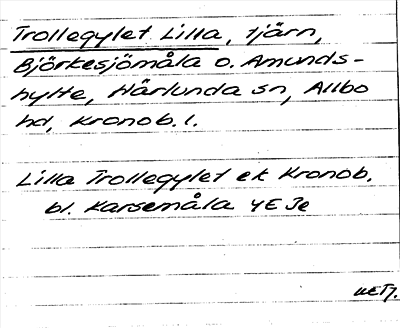 Trollegylet Lilla, tjärn,
Björkesjömåla o. Amunds-
hylte, Härlunda sn, Allbo
hd, Kronob. l.
Lilla Trollegylet ek Kronob.
bl. Karsemåla 4E 3e